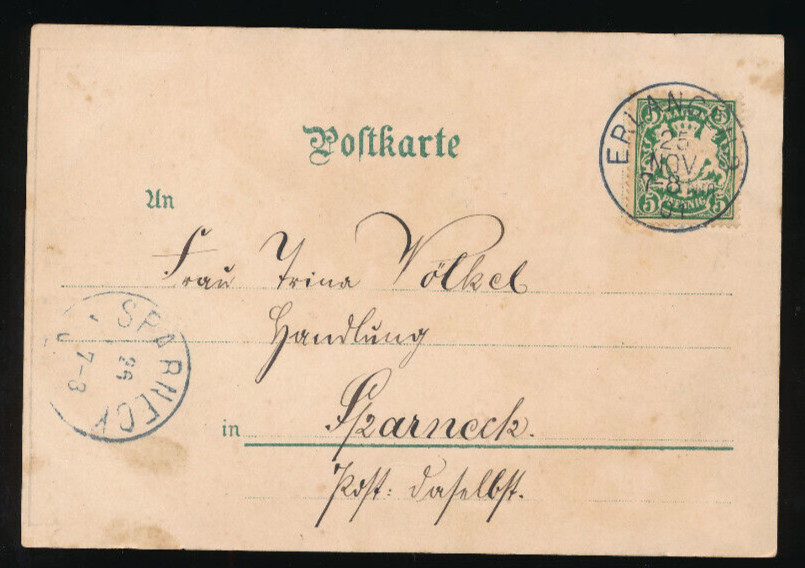 Postkarte
An
Frau Trina Völkel
Handlung
in Sparneck.
Post: daselbst.
ERLANGEN
25
NOV.
7-8
01
5 5
BAYERN
PFENNIG
5 5
SPARNECK
26
7-8